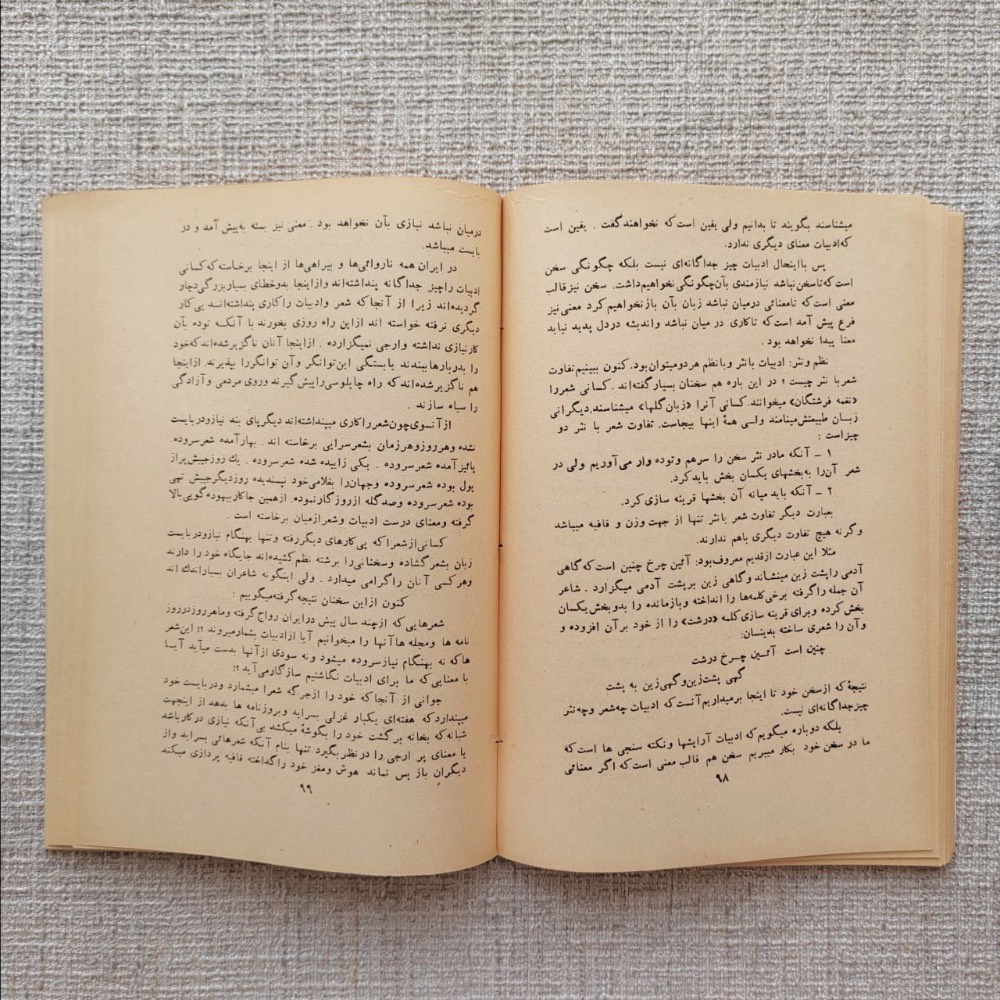 میشناسند بگویند تا بدانیم ولی یقین است که نخواهند گفت . یقین است
که ادبیات معنای دیگری ندارد.
پس با اینحال ادبیات چیز جداگانه‌ای نیست بلکه چگونگی سخن
است که تا سخن نباشد نیازمندی بآن چگونگی نخواهیم داشت. سخن نیز قالب
معنی است که تا معنائی درمیان نباشد زبان بآن باز نخواهیم کرد معنی نیز
فرع پیش آمد است که تا کاری در میان نباشد و اندیشه در دل پدید نیاید
معنا پیدا نخواهد بود .
نظم و نثر: ادبیات با نثر و با نظم هر دو میتوان بود. کنون ببینیم تفاوت
شعر با نثر چیست ؟ در این باره هم سخنان بسیار گفته‌اند. کسانی شعر را
«نغمه فرشتگان» میخوانند. کسانی آنرا «زبان گلها» میشناسند. دیگرانی
زبان طبیعتش مینامند ولی همهٔ اینها بیجاست. تفاوت شعر با نثر دو
چیز است :
۱ – آنکه ما در نثر سخن را سرهم و توده وار می‌آوریم ولی در
شعر آن را به بخشهای یکسان بخش باید کرد.
۲ – آنکه باید میانه آن بخشها قرینه سازی کرد.
بعبارت دیگر تفاوت شعر با نثر تنها از جهت وزن و قافیه میباشد
و گرنه هیچ تفاوت دیگری باهم ندارند.
مثلا این عبارت از قدیم معروف بود: آئین چرخ چنین است که گاهی
آدمی را پشت زین مینشاند و گاهی زین بر پشت آدمی میگزارد . شاعر
آن جمله را گرفته برخی کلمه‌ها را انداخته و بازمانده را بدو بخش یکسان
بخش کرده و برای قرینه سازی کلمه «درشت» را از خود بر آن افزوده و
و آن را شعری ساخته بدینسان:
چنین است آئین چرخ درشت
گهی پشت زین و گهی زین به پشت
نتیجهٔ که از سخن خود تا اینجا برمیداریم آنست که ادبیات چه شعر و چه نثر
چیز جداگانه‌ای نیست.
بلکه دوباره میگویم که ادبیات آرایشها و نکته سنجی ها است که
ما در سخن خود بکار میبریم سخن هم قالب معنی است که اگر معنائی
۹۸
درمیان نباشد نیازی بآن نخواهد بود . معنی نیز بسته به پیش آمد و در
بایست میباشد.
در ایران همه ناروائی‌ها و بیراهی‌ها از اینجا برخاسته که کسانی
ادبیات را چیز جداگانه پنداشته‌اند و از اینجا بدو خطای بسیار بزرگی دچار
گردیده‌اند زیرا از آنجا که شعر و ادبیات را کاری پنداشته‌اند پی کار
دیگری نرفته خواسته اند از این راه روزی بخورند با آنکه توده بآن
کار نیازی نداشته و ارجی نمیگزارده . از اینجا آنان ناگزیر شده‌اند که خود
را بدربارها ببندند یا بستگی این توانگر و آن توانگر را بپذیرند. از اینجا
هم ناگزیر شده‌اند که راه چاپلوسی را پیش گیرند و روی مردمی و آزادگی
را سیاه سازند .
از آنسوی چون شعر را کاری میپنداشته‌اند دیگر پای بند نیاز و دربایست
نشده و هر روز و هر زمان بشعر سرایی برخاسته اند . بهار آمده شعر سروده.
پائیز آمده شعر سروده . یکی زاییده شده شعر سروده . یك روز جیبش پر از
پول بوده شعر سروده و جهان را بغلامی خود نپسندیده روز دیگر جیبش تهی
بوده شعر سروده و صد گله از روزگار نموده. از همین جا کار بیهوده گویی بالا
گرفته و معنای درست ادبیات و شعر از میان برخاسته است .
کسانی از شعرا که پی کارهای دیگر رفته و تنها بهنگام نیاز و دربایست
زبان بشعر گشاده و سخنانی را برشته نظم کشیده‌اند جایگاه خود را دارند
و هر کسی آنان را گرامی میدارد . ولی اینگونه شاعران بسیار اندك اند
کنون از این سخنان نتیجه گرفته میگوییم :
شعرهایی که از چند سال پیش در ایران رواج گرفته و ما هر روز در روز
نامه ها و مجله ها آنها را میخوانیم آیا از ادبیات بشمار میروند ؟! این شعر
ها که نه بهنگام نیاز سروده میشود و نه سودی از آنها بدست میآید آیا
با معنایی که ما برای ادبیات نگاشتیم سازگار می‌آید ؟!
جوانی از آنجا که خود را از جرگه شعرا میشمارد و دربایست خود
میپندارد که هفته‌ای یکبار غزلی بسراید و بروزنامه ها بدهد از اینجهت
شبانه که بخانه برگشت خود را بگوشهٔ میکشد بی‌آنکه نیازی در کار باشد
یا معنای پر ارجی را در نظر بگیرد تنها بنام آنکه شعرهائی بسراید و از
دیگران باز پس نماند هوش و مغز خود را گداخته قافیه پردازی میکند
۹۹